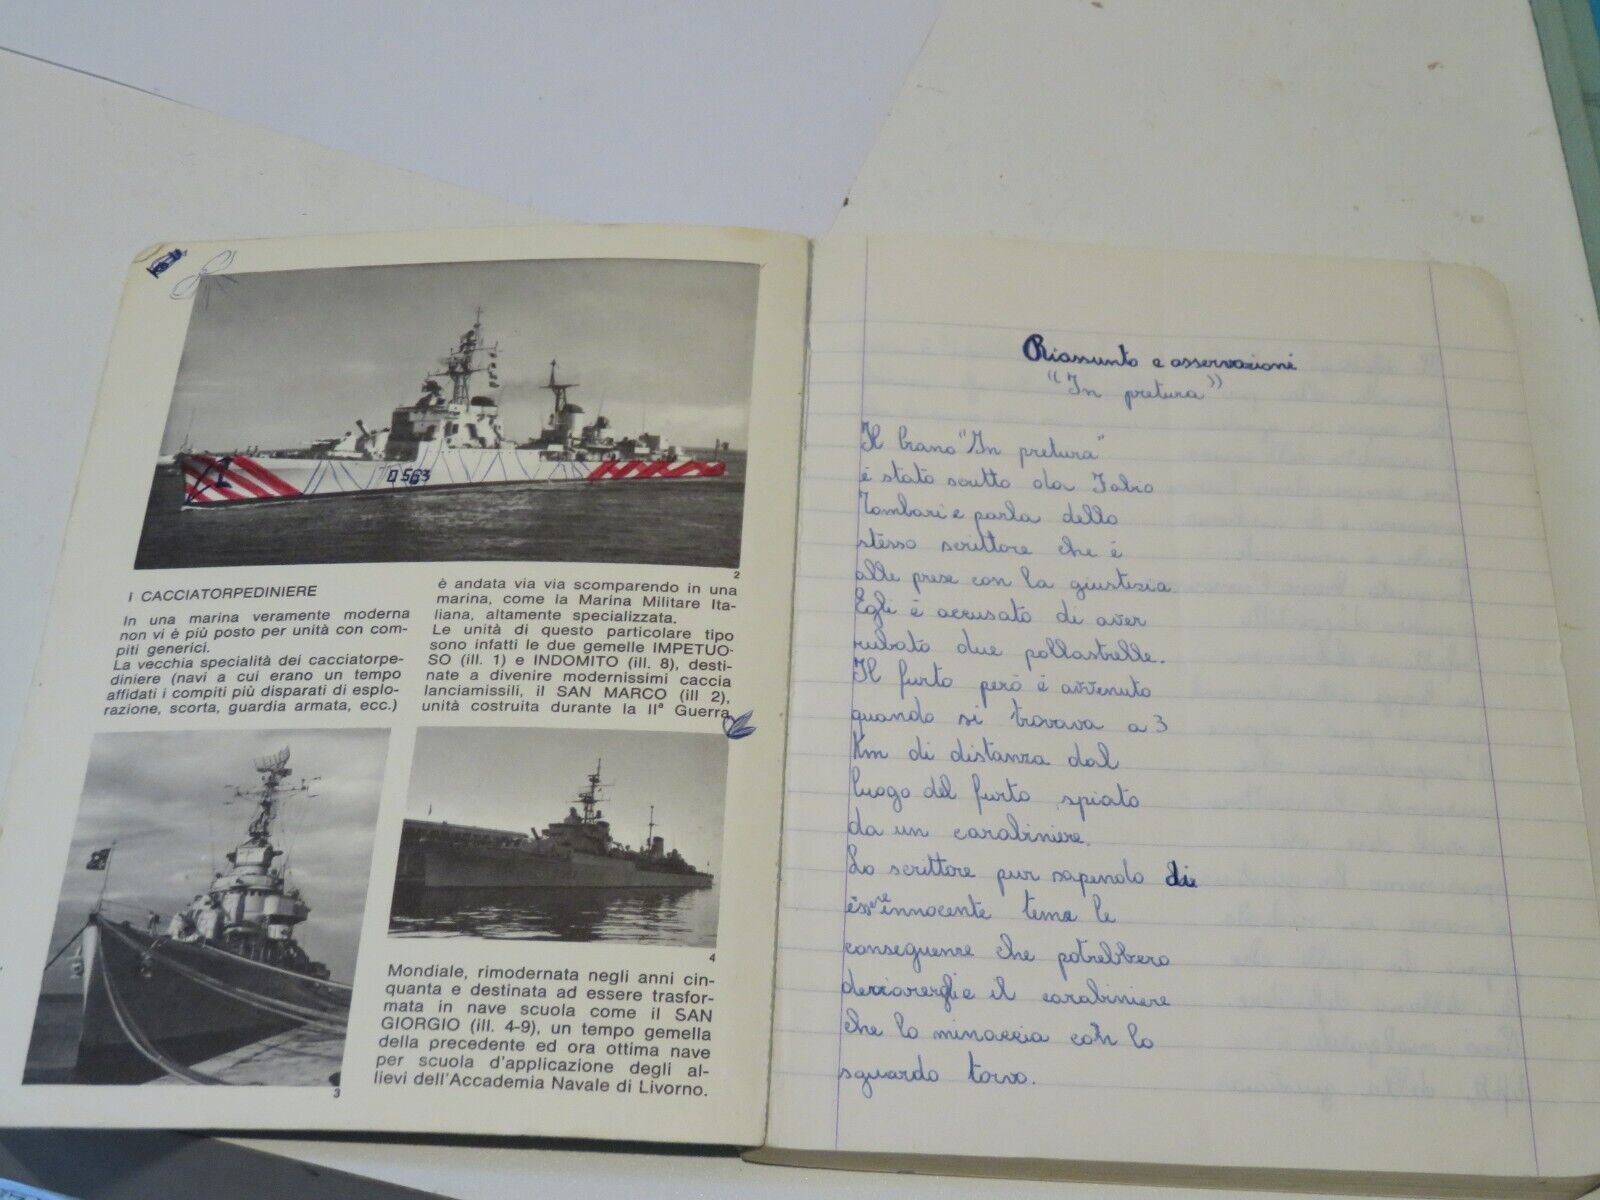 D 563
2
I CACCIATORPEDINIERE
In una marina veramente moderna
non vi è più posto per unità con com-
piti generici.
La vecchia specialità dei cacciatorpe-
diniere (navi a cui erano un tempo
affidati i compiti più disparati di esplo-
razione, scorta, guardia armata, ecc.)
è andata via via scomparendo in una
marina, come la Marina Militare Ita-
liana, altamente specializzata.
Le unità di questo particolare tipo
sono infatti le due gemelle IMPETUO-
SO (ill. 1) e INDOMITO (ill. 8), desti-
nate a divenire modernissimi caccia
lanciamissili, il SAN MARCO (ill 2),
unità costruita durante la IIª Guerra
3
4
Mondiale, rimodernata negli anni cin-
quanta e destinata ad essere trasfor-
mata in nave scuola come il SAN
GIORGIO (ill. 4-9), un tempo gemella
della precedente ed ora ottima nave
per scuola d'applicazione degli al-
lievi dell'Accademia Navale di Livorno.
Riassunto e osservazioni
"In pretura"
Il brano "In pretura"
è stato scritto da Fabio
Tombari e parla dello
stesso scrittore che è
alle prese con la giustizia
Egli è accusato di aver
rubato due pollastrelle.
Il furto però è avvenuto
quando si trovava a 3
Km di distanza dal
luogo del furto spiato
da un carabiniere.
Lo scrittore pur sapendo di
essere innocente teme le
conseguenze che potrebbero
e il carabiniere
che lo minaccia con lo
sguardo torvo.